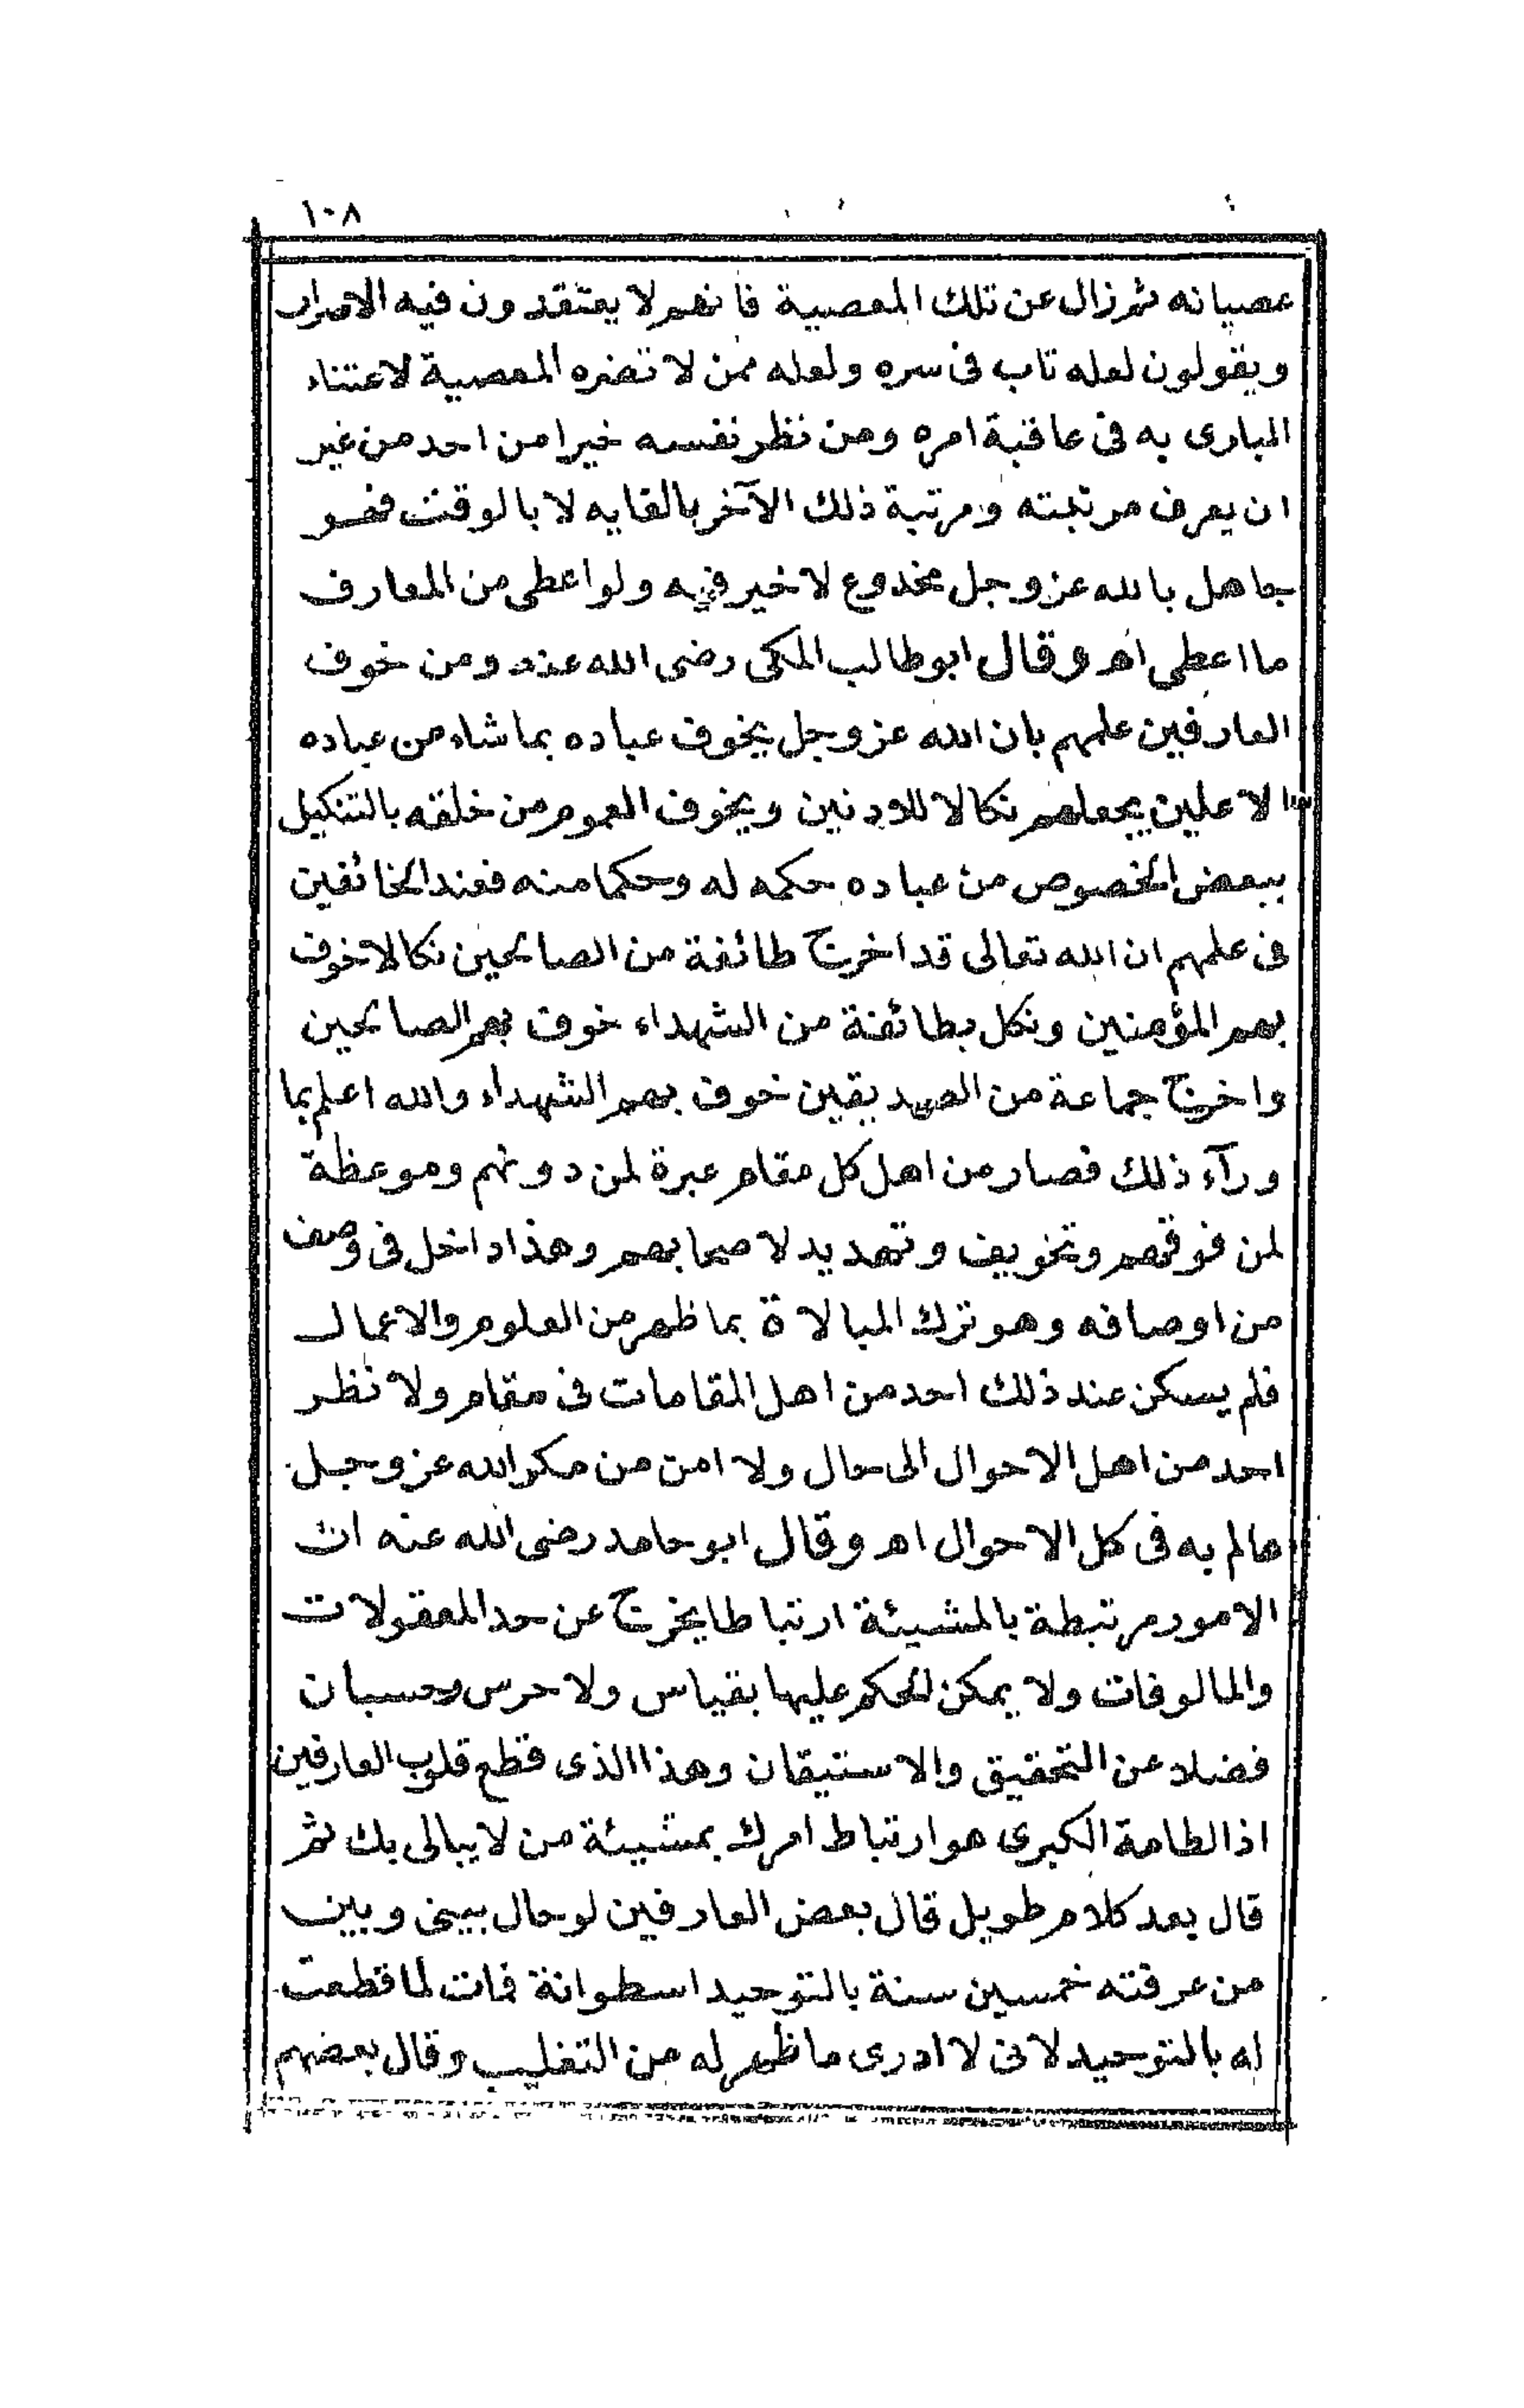 ١٠٨
عصيانه ثم زال عن تلك المعصية فانهم لا يعتقدون فيه الاصرار
ويقولون لعله تاب فى سره ولعله ممن لا تضره المعصية لاعتناء
البارى به فى عاقبة امره ومن نظر نفسه خيرا من احد من غير
ان يعرف مرتبته ومرتبة ذلك الآخر بالغايه لا بالوقت فهو
جاهل بالله عز وجل مخدوع لا خير فيه ولو اعطى من المعارف
ما اعطى اه وقال ابو طالب المكى رضى الله عنه ومن خوف
العارفين علمهم بان الله عز وجل يخوف عباده بما شاء من عباده
الاعلين يجعلهم نكالا للادنين ويخوف العموم من خلقه بالتنكيل
ببعض الخصوص من عباده حكمه له وحكما منه فعند الخائفين
فى علمهم ان الله تعالى قد اخرج طائفة من الصالحين نكالا خوف
بهم المؤمنين ونكل بطائفة من الشهداء خوف بهم الصالحين
واخرج جماعة من الصديقين خوف بهم الشهداء والله اعلم بما
ورآء ذلك فصار من اهل كل مقام عبرة لمن دونهم وموعظة
لمن فوقهم وتخويف وتهديد لاصحابهم وهذا داخل فى وصف
من اوصافه وهو ترك المبالاة بما ظهر من العلوم والاعمال
فلم يسكن عند ذلك احد من اهل المقامات فى مقام ولا نظر
احد من اهل الاحوال الى حال ولا امن من مكر الله عز وجل
عالم به فى كل الاحوال اه وقال ابو حامد رضى الله عنه ان
الامور مرتبطة بالمشيئة ارتباطا يخرج عن حد المعقولات
والمالوفات ولا يمكن الحكم عليها بقياس ولا حرس وحسبان
فضلا عن التحقيق والاستيقان وهذا الذى قطع قلوب العارفين
اذ الطامة الكبرى هو ارتباط امرك بمشيئة من لا يبالى بك ثم
قال بعد كلام طويل قال بعض العارفين لو حال بينى وبين
من عرفته خمسين سنة بالتوحيد اسطوانة فمات لما قطعت
له بالتوحيد لانى لا ادرى ما ظهر له من التغليب وقال بعضهم